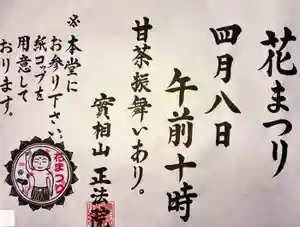 花まつり
四月八日
午前十時
甘茶振舞いあり。
實相山 正法
※本堂に
お参り下さい。
紙コップを
用意して
おります。
花まつり